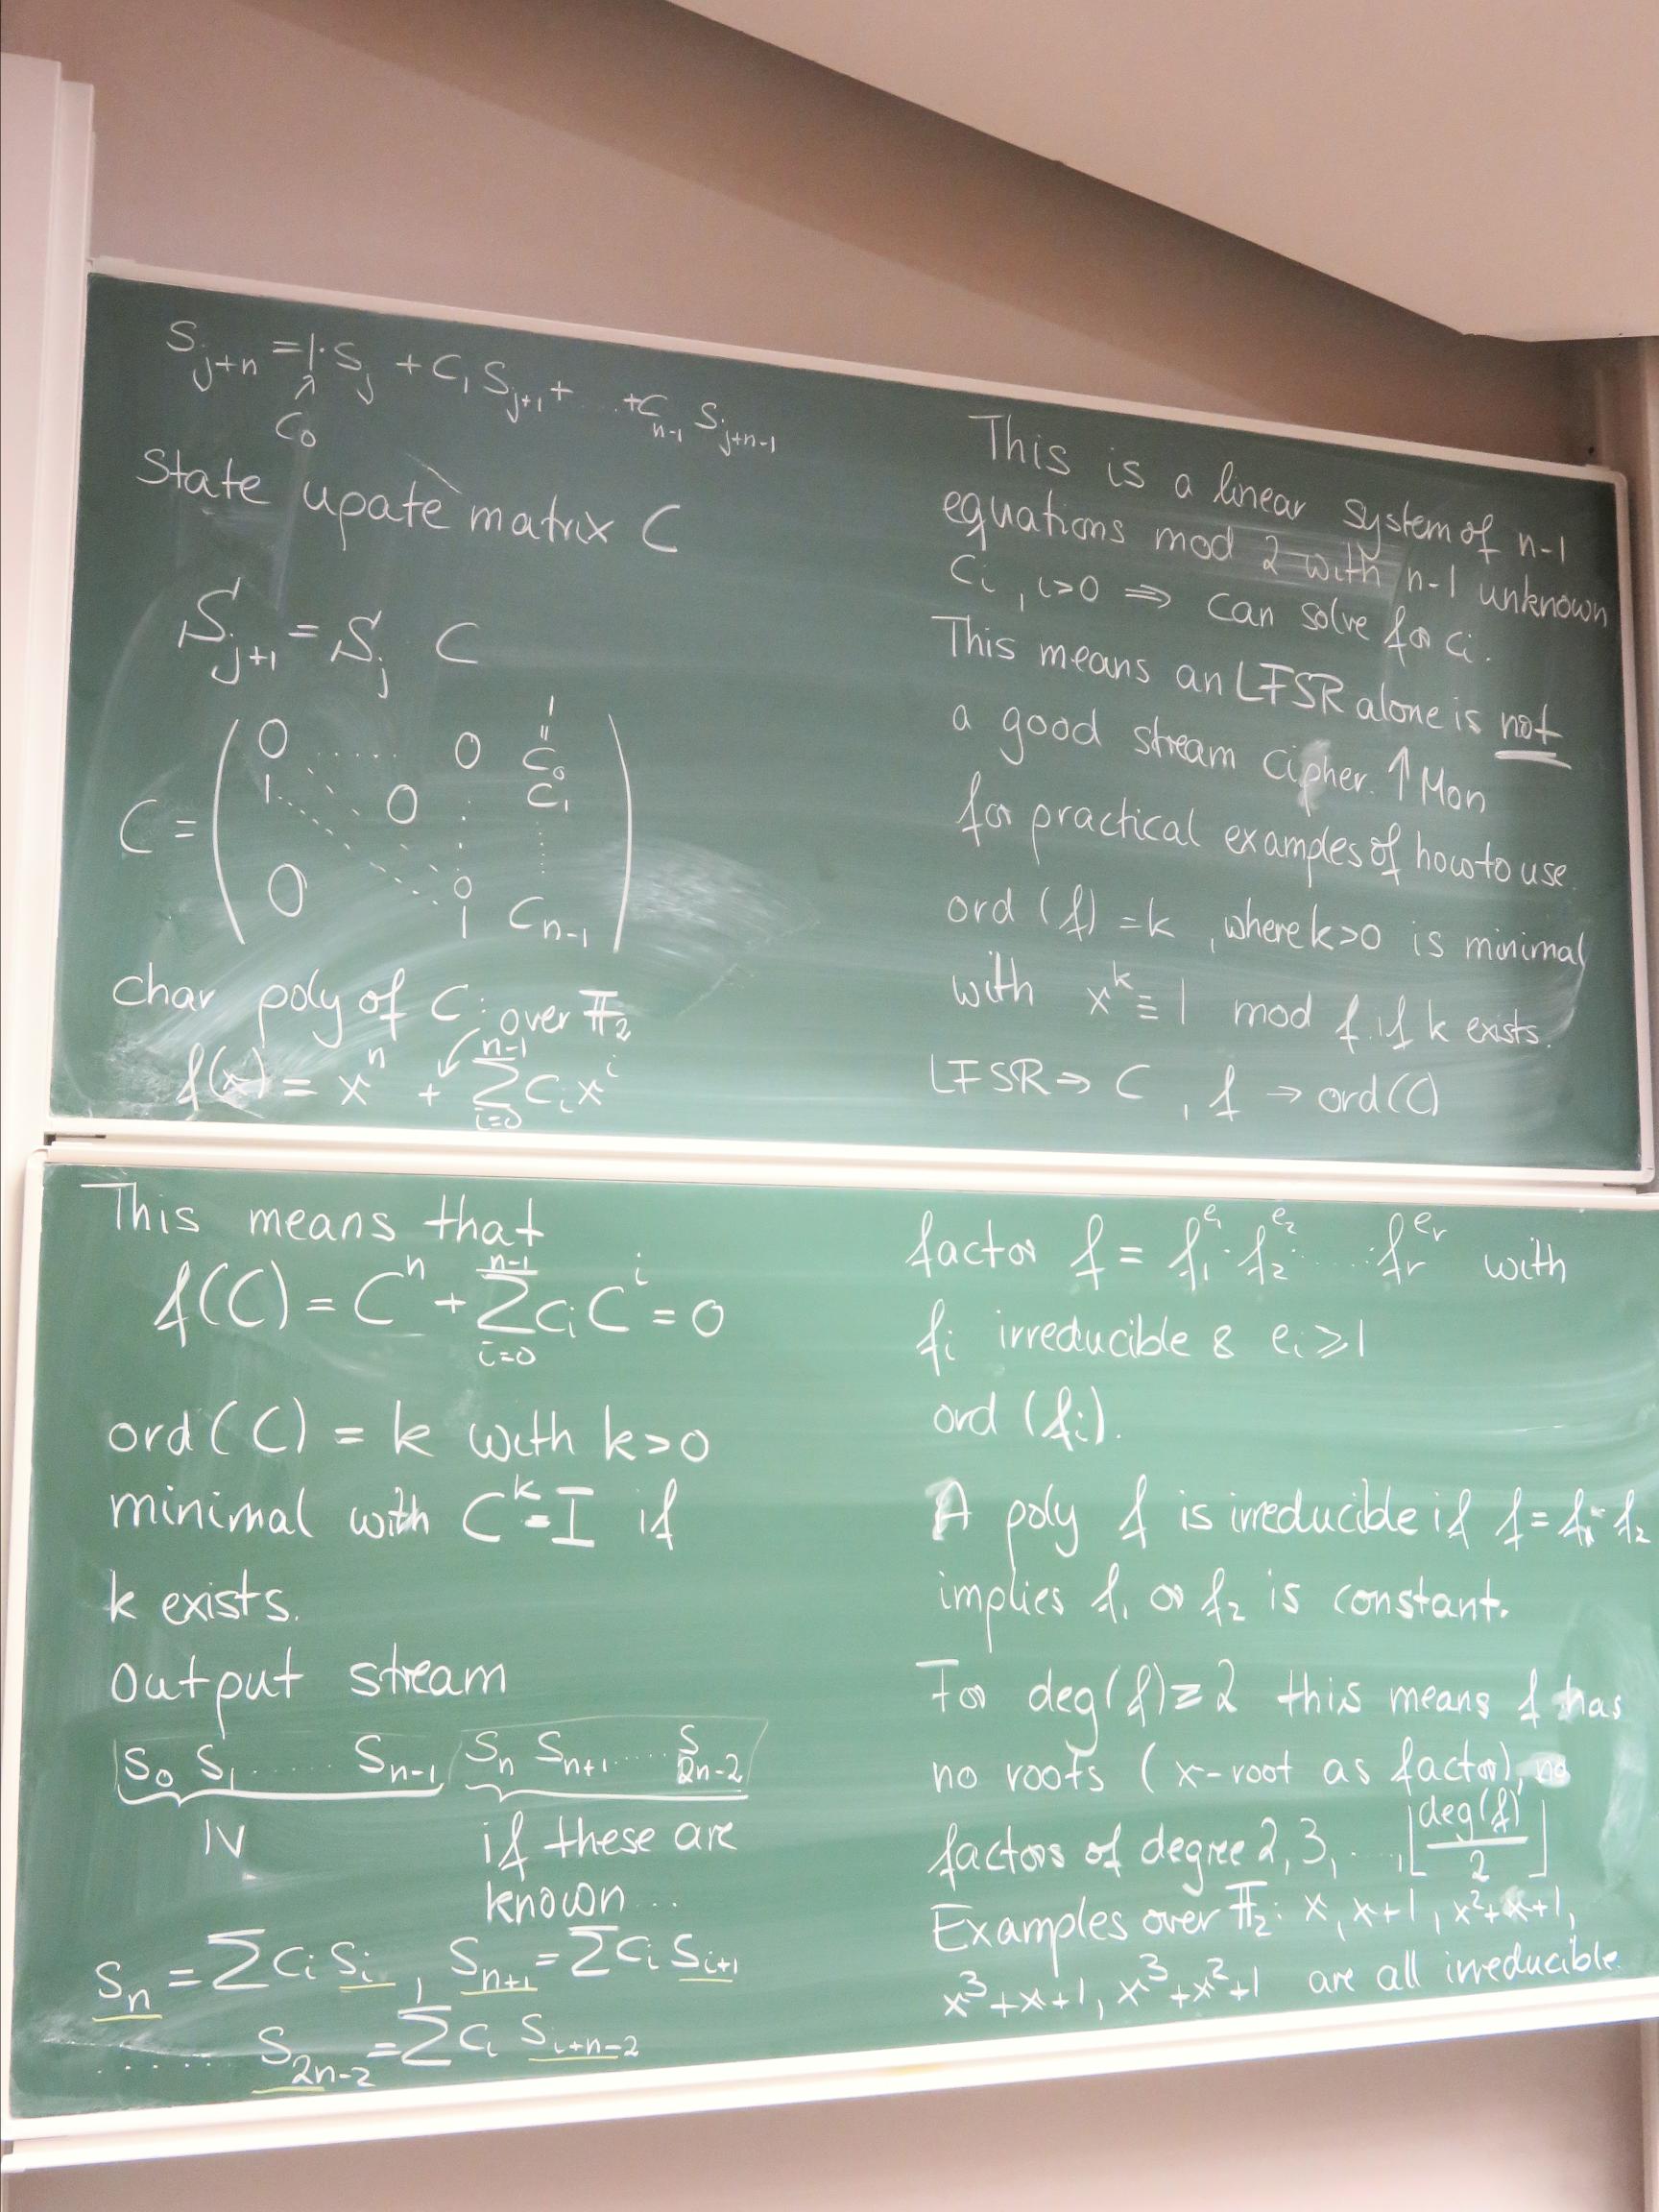 S_{j+n} = 1·S_j + C_1 S_{j+1} + ... + C_{n-1} S_{j+n-1}
↑
C_0
State upate matrix C
S_{j+1} = S_j C
1
"
0 ...... 0 C_0
1 ... 0 : C_1
C =
0 0
1 C_{n-1}
char poly of C: over F_2
f(x) = x^n + \sum_{i=0}^{n-1} C_i x^i
This means that
f(C) = C^n + \sum_{i=0}^{n-1} C_i C^i = 0
ord(C) = k with k>0
minimal with C^k = I if
k exists.
output stream
S_0 S_1 ...... S_{n-1} S_n S_{n+1} ..... S_{2n-2}
IV if these are
known ...
S_n = \sum C_i S_i , S_{n+1} = \sum C_i S_{i+1}
...... S_{2n-2} = \sum C_i S_{i+n-2}
This is a linear system of n-1
equations mod 2 with n-1 unknown
C_i, i>0 ⇒ can solve for C_i.
This means an LFSR alone is not
a good stream cipher. ↑ Mon
for practical examples of how to use.
ord (f) = k, where k>0 is minimal
with x^k ≡ 1 mod f if k exists.
LFSR ⇒ C, f → ord(C)
factor f = f_1^{e_1} · f_2^{e_2} ..... f_r^{e_r} with
f_i irreducible & e_i ≥ 1
ord (f_i).
A poly f is irreducible if f = f_1 · f_2
implies f_1 or f_2 is constant.
For deg(f) ≥ 2 this means f has
no roots (x-root as factor), no
factors of degree 2,3,...,⌊deg(f)/2⌋
Examples over F_2: x, x+1, x^2+x+1,
x^3+x+1, x^3+x^2+1 are all irreducible.